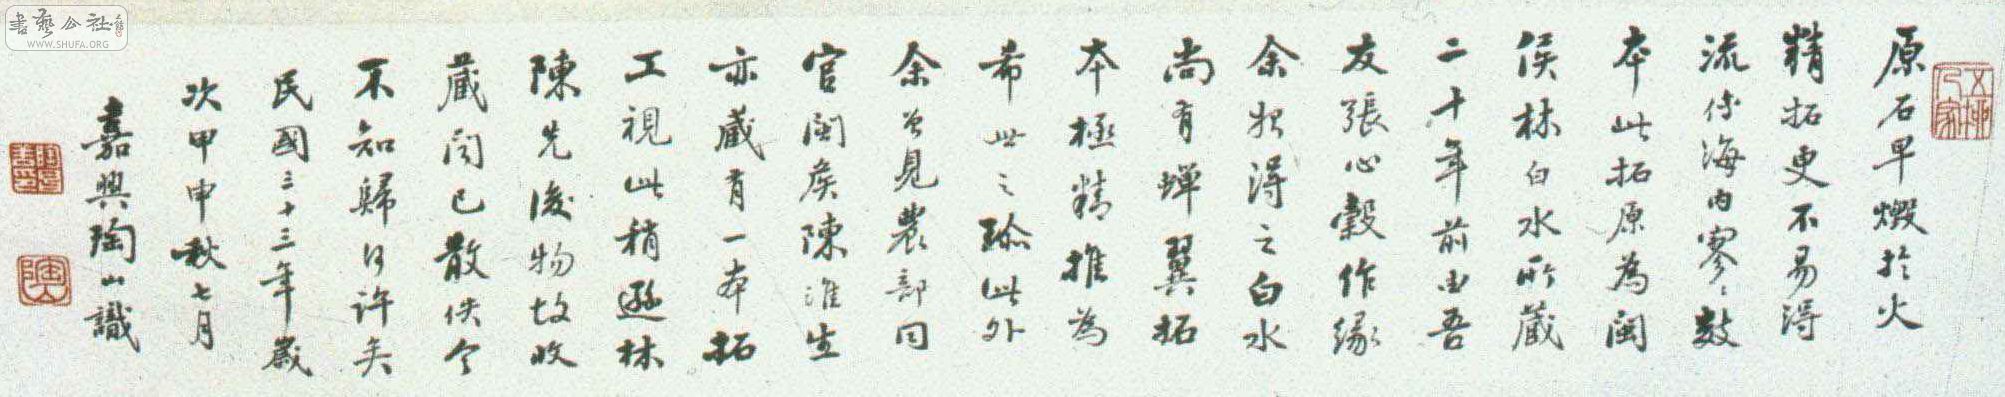 原石早燬於火
精拓更不易得
流傳海内寥々數
本此拓原為閩
侯林白水所藏
二十年前由吾
友張心穀作缘
余始得之白水
尚有蟬翼拓
本極精推為
希世之珎此外
余曾見農部同
官閩侯陳淮生
亦藏有一本拓
工視此稍遜林
陳先後物故收
藏闻已散佚今
不知歸何許矣
民國三十三年歲
次甲申秋七月
嘉興陶山識
陶
書藝公社
WWW.SHUFA.ORG